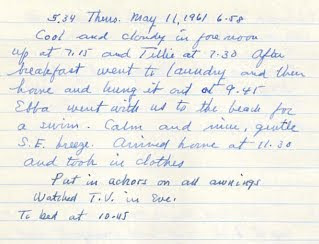 5.34 Thurs. May 11, 1961 6.58
Cool and cloudy in forenoon
up at 7.15 and Tillie at 7.30 After
breakfast went to laundry and then
home and hung it out at 9.45
Ebba went with us to the beach for
a swim. Calm and nice, gentle
S.E. breeze. Arrived home at 11.30
and took in clothes
Put in ackors on all awnings
Watched T.V. in Eve.
To bed at 10.45